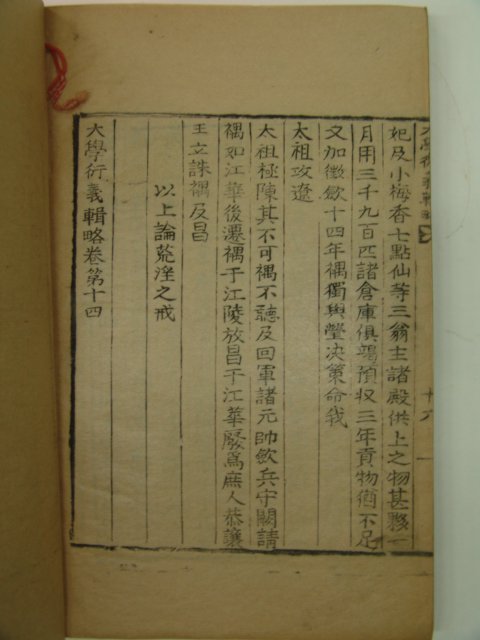 妃及小梅香七點仙等三翁主諸殿供上之物甚夥一
月用三千九百匹諸倉庫俱竭預収三年貢物猶不足
又加徵歛十四年禑獨與瑩决策命我
太祖攻遼
太祖極陳其不可禑不聽及回軍諸元帥歛兵守闕請
禑如江華後遷禑于江陵放昌于江華廢爲庶人恭讓
王立誅禑及昌
以上論荒淫之戒
大學衍義輯略卷第十四